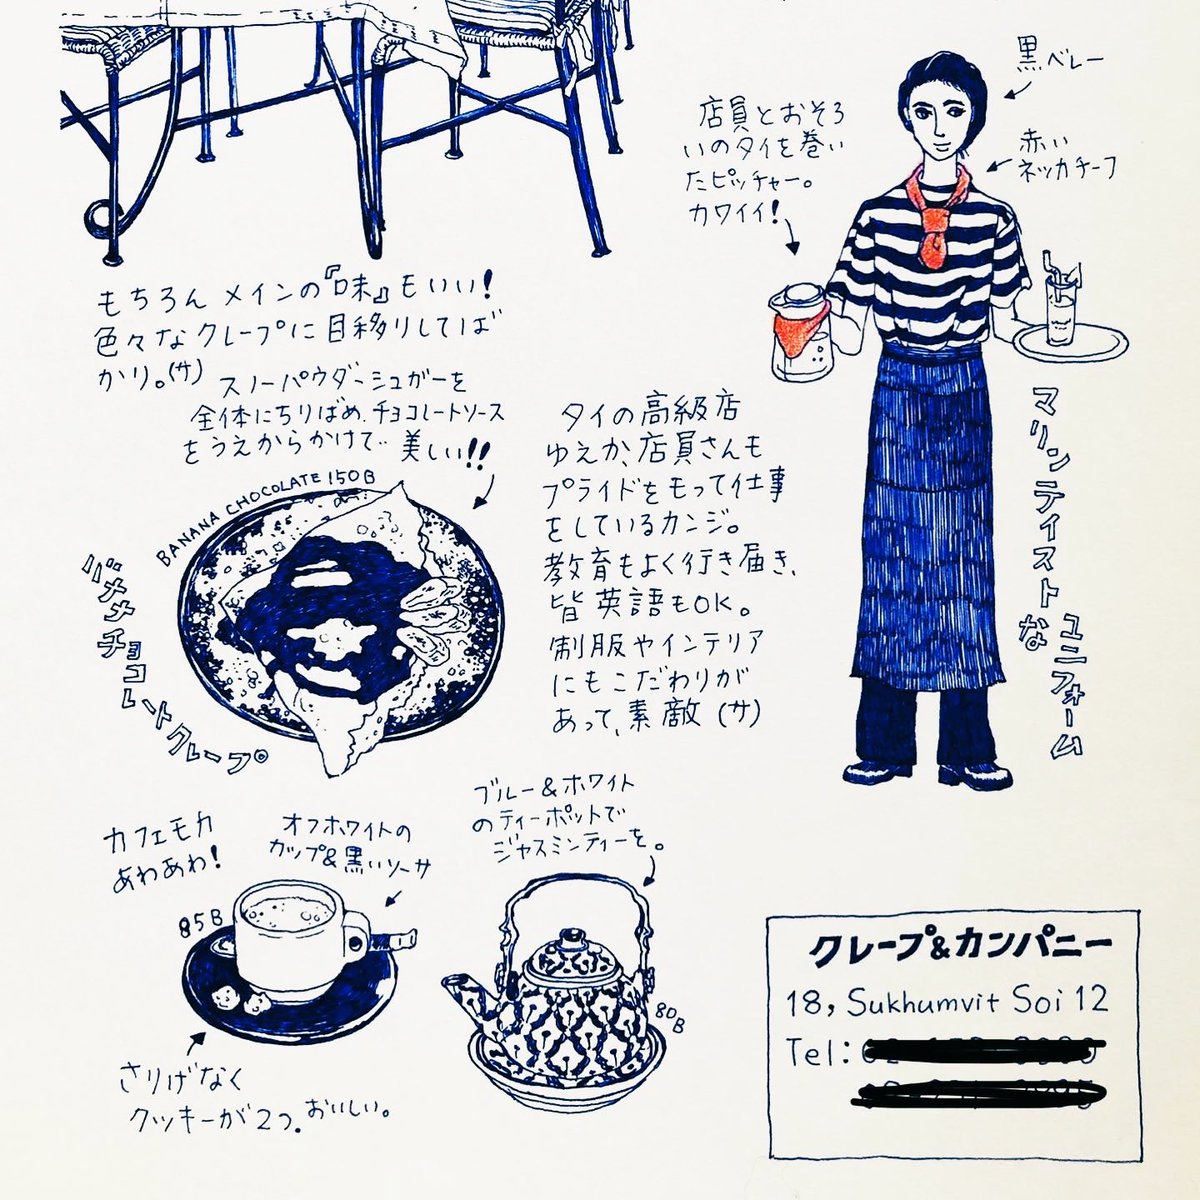 黒ベレー
店員とおそろ
いのタイを巻い
たピッチャー。
カワイイ!
赤い
ネッカチーフ
もちろん メインの『味』もいい!
色々なクレープに目移りしてば
かり。(サ)
スノーパウダーシュガーを
全体にちりばめ、チョコレートソース
をうえからかけて… 美しい!!
BANANA CHOCOLATE 150B
バナナチョコレートクレープ。
タイの高級店
ゆえか、店員さんも
プライドをもって仕事
をしているカンジ。
教育もよく行き届き、
皆英語もOK。
制服やインテリア
にもこだわりが
あって、素敵 (サ)
マリンテイストな
ユニフォーム
カフェモカ
あわあわ!
オフホワイトの
カップ&黒いソーサ
85B
さりげなく
クッキーが2つ。おいしい。
ブルー&ホワイト
のティーポットで
ジャスミンティーを。
80B
クレープ&カンパニー
18, Sukhumvit Soi 12
Tel: